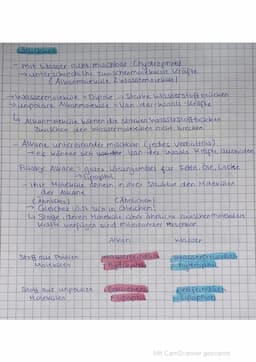 Löslichkeit
- mit Wasser nicht mischbar (hydrophob)
→ unterschiedliche zwischenmolekulare Kräfte
(Alkanmoleküle & Wassermoleküle)
→ Wassermoleküle = Dipole → starke Wasserstoffbrücken
→ unpolare Alkanmoleküle = Van-der-Waals-Kräfte
↳ Alkanmoleküle können die starken Wasserstoffbrücken
zwischen den Wassermolekülen nicht brechen
- Alkane untereinander mischbar (jedes Verhältnis)
→ es können sich Van der Waals Kräfte ausbilden
Flüssige Alkane = gutes Lösungsmittel für Fette, Öle, Lacke
→ lipophil
- ihre Moleküle ähneln in ihrer Struktur den Molekülen
der Alkane
(Ähnliches) (Ähnlichem)
→ Gleiches löst sich in Gleichem!
↳ Stoffe, deren Moleküle über ähnliche zwischenmolekulare
Kräfte verfügen sind miteinander mischbar
Alkan Wasser
Stoff aus Polaren
Molekülen hydrophil
Stoff aus unpolaren
Molekülen lipophil lipophob
Mit CamScanner gescannt